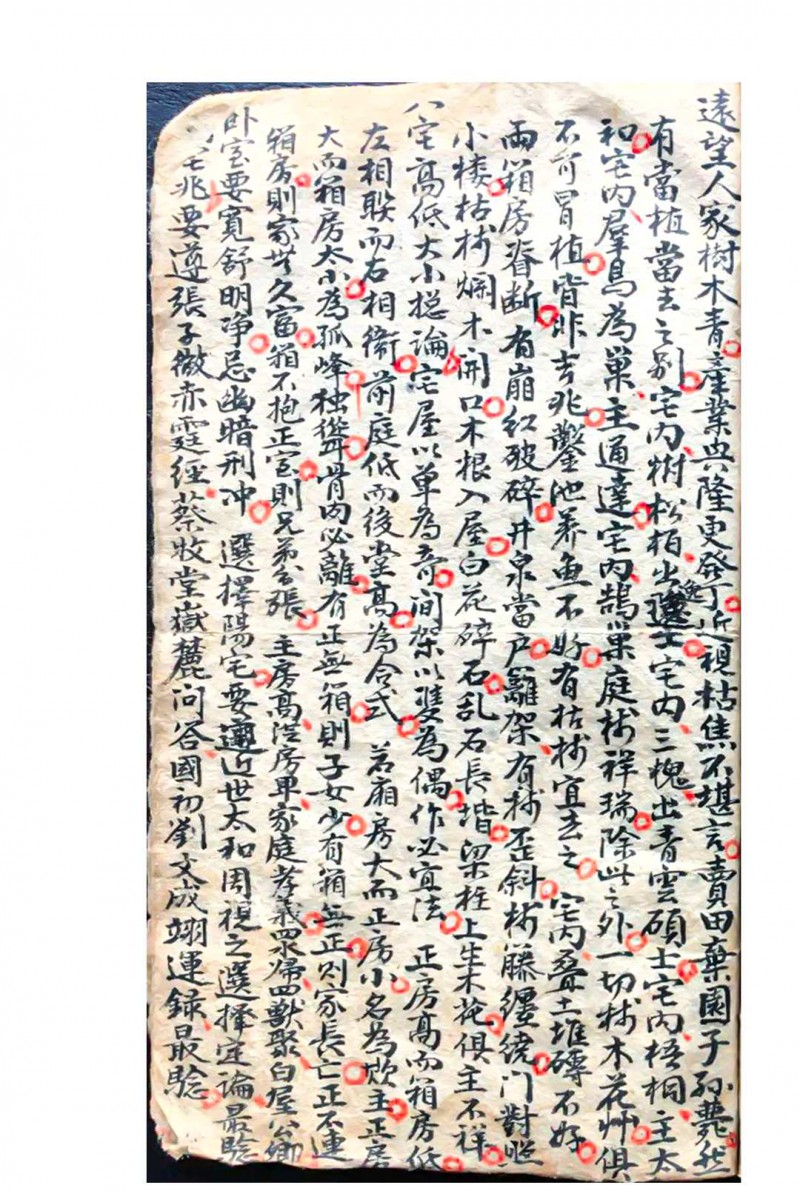 遠望人家樹木青產業興隆更發丁近視枯焦不堪言賣田棄園子孫
有當植當去之別宅內樹松柏出逸士宅內三槐出青雲碩士宅內梧桐主太
和宅內羣鳥為巢主通達宅內鵲巢庭樹祥瑞除此之外一切樹木花艸俱
不可冒植皆非吉兆鑿池养魚不好有枯樹宜去之宅內叠土堆磚不好
兩箱房脊断有崩紅破碎井泉當户籬架有樹歪斜樹藤纏繞门對照
小樓枯樹爛木開口木根入屋白花碎石乱石長堦梁柱上生木花俱主不祥
八宅高低大小捴論宅屋以單為竒间架以雙為偶作必宜法正房高而箱房低
左相联而右相衛前庭低而後堂高為合式若廂房大而正房小名為欺主正房
大而箱房太小為孤峰独聳骨肉必離有正無箱則子女少有箱無正則家長亡正不連
箱房則家世久富箱不抱正室則兄弟分張主房高從房卑家庭孝義眾歸四獸聚白屋公卿
卧室要寬舒明净忌幽暗刑冲選擇陽宅要遵近世太和周視之選擇定論最驗
宅兆要遵張子微赤霆經蔡牧堂嶽麓问答國初劉文成翊運録最驗